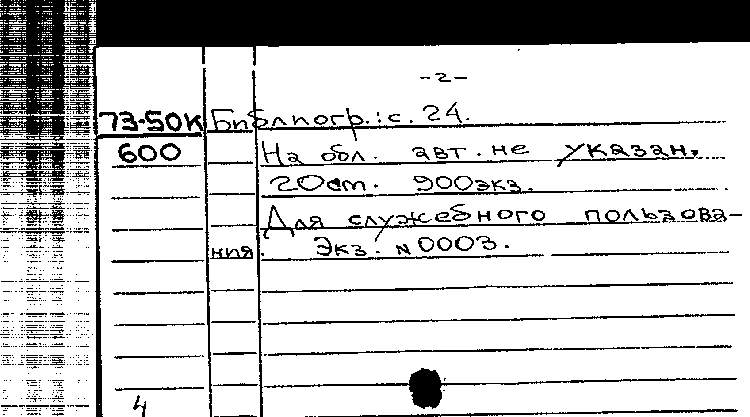 -2-
73-50К Библиогр.: с. 24.
600 На обл. авт. не указан.
20см. 900экз.
Для служебного пользова-
ния. Экз. №0003.
4